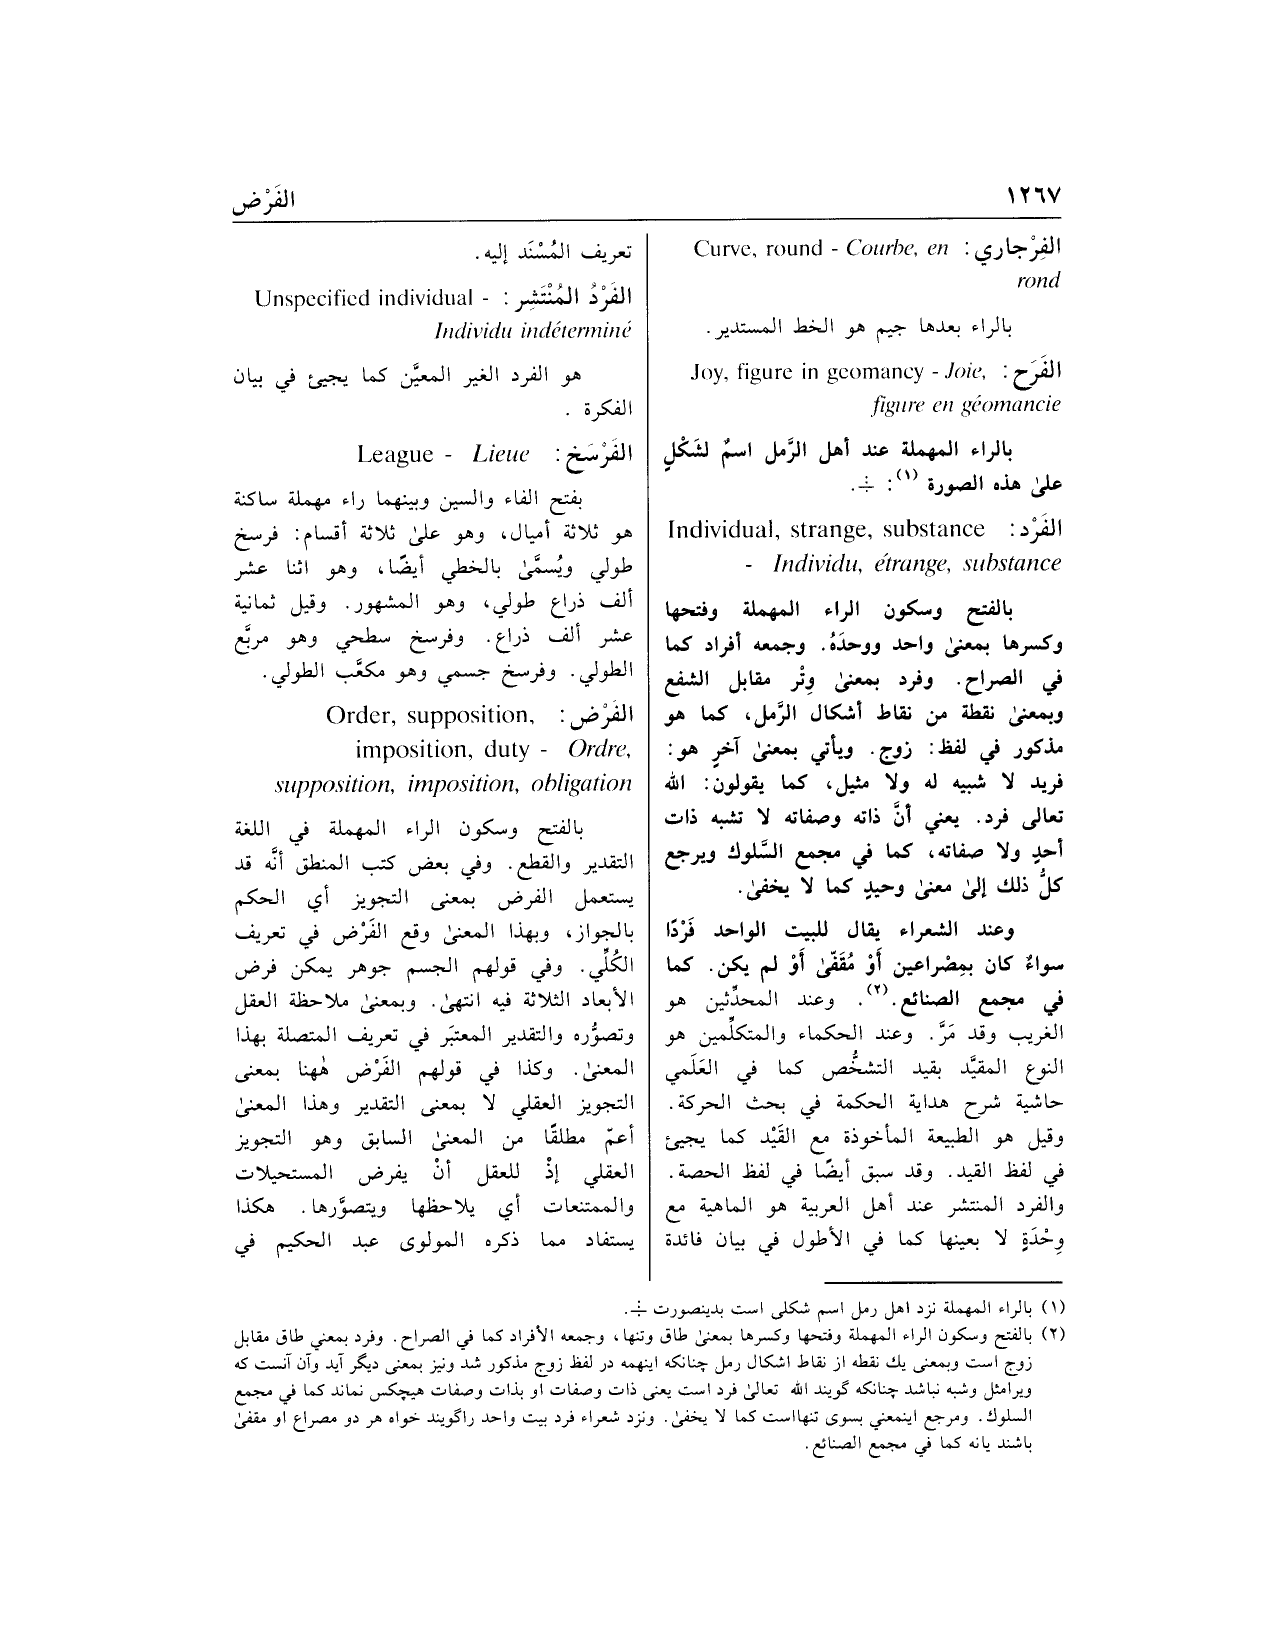 ١٢٦٧
الفَرْض
الفِرْجاري: Curve, round - Courbe, en
rond
بالراء بعدها جيم هو الخط المستدير.
الفَرَح: Joy, figure in geomancy - Joie,
figure en géomancie
بالراء المهملة عند أهل الرَّمل اسمٌ لشَكْلٍ
علىٰ هذه الصورة (١): ∸.
الفَرْد: Individual, strange, substance
- Individu, étrange, substance
بالفتح وسكون الراء المهملة وفتحها
وكسرها بمعنىٰ واحد ووحدَهُ. وجمعه أفراد كما
في الصراح. وفرد بمعنىٰ وِتْر مقابل الشفع
وبمعنىٰ نقطة من نقاط أشكال الرَّمل، كما هو
مذكور في لفظ: زوج. ويأتي بمعنىٰ آخرٍ هو:
فريد لا شبيه له ولا مثيل، كما يقولون: الله
تعالى فرد. يعني أنَّ ذاته وصفاته لا تشبه ذات
أحدٍ ولا صفاته، كما في مجمع السَّلوك ويرجع
كلُّ ذلك إلىٰ معنىٰ وحيدٍ كما لا يخفىٰ.
وعند الشعراء يقال للبيت الواحد فَرْدًا
سواءٌ كان بمِصْراعين أَوْ مُقَفّىٰ أَوْ لم يكن. كما
في مجمع الصنائع.(٢). وعند المحدِّثين هو
الغريب وقد مَرَّ. وعند الحكماء والمتكلِّمين هو
النوع المقيَّد بقيد التشخُّص كما في العَلَمي
حاشية شرح هداية الحكمة في بحث الحركة.
وقيل هو الطبيعة المأخوذة مع القَيْد كما يجيئ
في لفظ القيد. وقد سبق أيضًا في لفظ الحصة.
والفرد المنتشر عند أهل العربية هو الماهية مع
وِحْدَةٍ لا بعينها كما في الأطول في بيان فائدة
تعريف المُسْنَد إليه.
الفَرْدُ المُنْتَشِر: Unspecified individual -
Individu indéterminé
هو الفرد الغير المعيَّن كما يجيئ في بيان
الفكرة .
الفَرْسَخ: League - Lieue
بفتح الفاء والسين وبينهما راء مهملة ساكنة
هو ثلاثة أميال، وهو علىٰ ثلاثة أقسام: فرسخ
طولي ويُسمَّىٰ بالخطي أيضًا، وهو اثنا عشر
ألف ذراع طولي، وهو المشهور. وقيل ثمانية
عشر ألف ذراع. وفرسخ سطحي وهو مربَّع
الطولي. وفرسخ جسمي وهو مكعَّب الطولي.
الفَرْض: Order, supposition,
imposition, duty - Ordre,
supposition, imposition, obligation
بالفتح وسكون الراء المهملة في اللغة
التقدير والقطع. وفي بعض كتب المنطق أنَّه قد
يستعمل الفرض بمعنى التجويز أي الحكم
بالجواز، وبهذا المعنىٰ وقع الفَرْض في تعريف
الكُلِّي. وفي قولهم الجسم جوهر يمكن فرض
الأبعاد الثلاثة فيه انتهىٰ. وبمعنىٰ ملاحظة العقل
وتصوُّره والتقدير المعتبَر في تعريف المتصلة بهذا
المعنىٰ. وكذا في قولهم الفَرْض هٰهنا بمعنى
التجويز العقلي لا بمعنى التقدير وهذا المعنىٰ
أعمّ مطلقًا من المعنىٰ السابق وهو التجويز
العقلي إذْ للعقل أنْ يفرض المستحيلات
والممتنعات أي يلاحظها ويتصوَّرها. هكذا
يستفاد مما ذكره المولوى عبد الحكيم في
(١) بالراء المهملة نزد اهل رمل اسم شكلى است بدينصورت ∸.
(٢) بالفتح وسكون الراء المهملة وفتحها وكسرها بمعنىٰ طاق وتنها، وجمعه الأفراد كما في الصراح. وفرد بمعني طاق مقابل
زوج است وبمعنى يك نقطه از نقاط اشكال رمل چنانكه اينهمه در لفظ زوج مذكور شد ونيز بمعنى ديگر آيد وآن آنست كه
ويرامثل وشبه نباشد چنانكه گويند الله تعالىٰ فرد است يعنى ذات وصفات او بذات وصفات هيچكس نماند كما في مجمع
السلوك. ومرجع اينمعني بسوى تنهااست كما لا يخفىٰ. ونزد شعراء فرد بيت واحد راگويند خواه هر دو مصراع او مقفىٰ
باشند يانه كما في مجمع الصنائع.